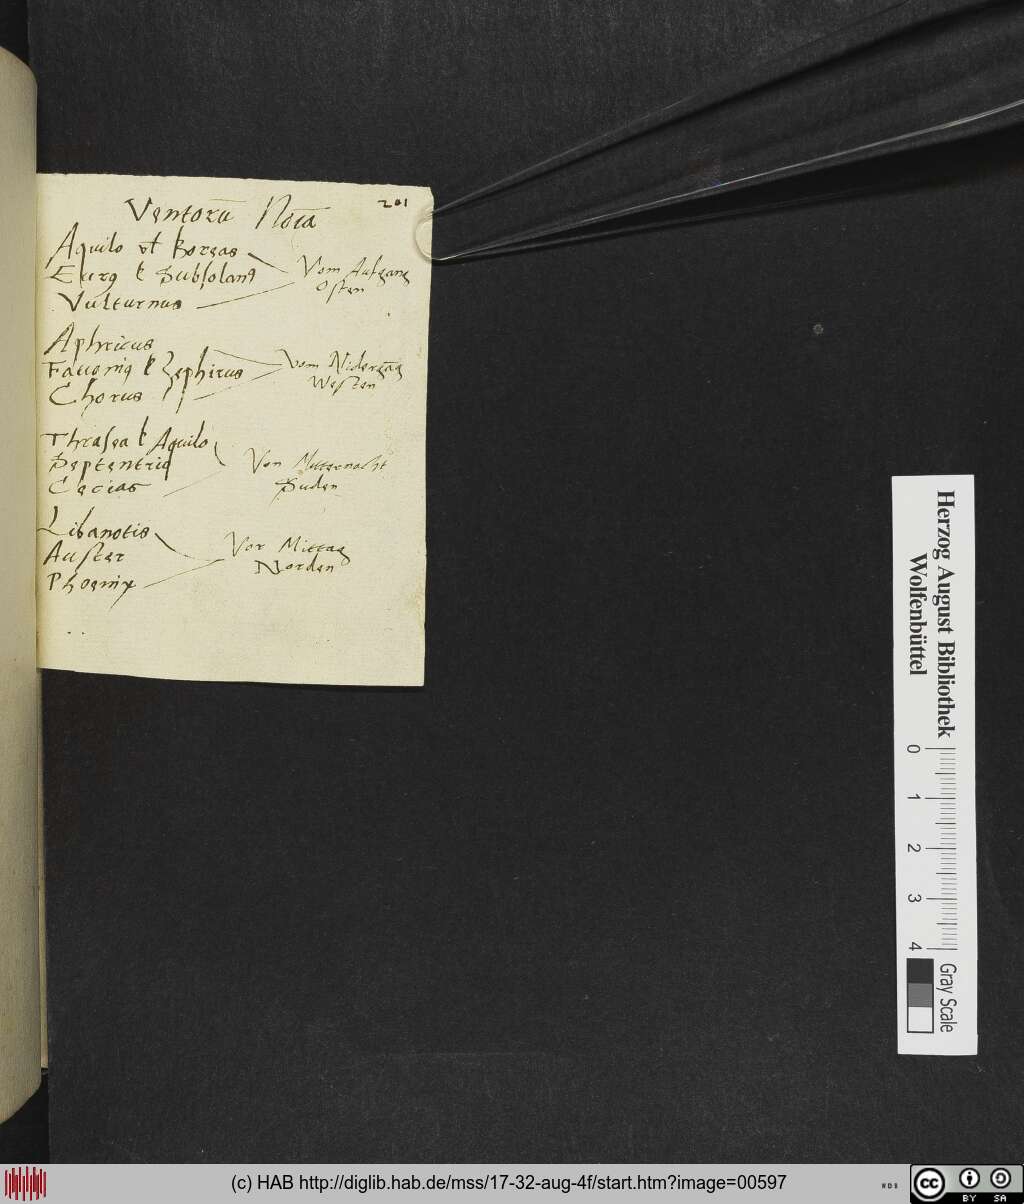 201
Ventorū Noīa
Aquilo vl Boreas
Eurꝯ l Subsolanꝯ
Vulturnus
Vom Aufgang
Osten
Aphricus
Fauoniꝯ l Zephirus
Chorus
vom Nidergāg
Westen
Thrasea l Aquilo
Septentrio
Cecias
Von Mitternacht
Suden
Libanotis
Auster
Phoenix
Vor Mittag
Norden
Herzog August Bibliothek
Wolfenbüttel
0 1 2 3 4
Gray Scale
(c) HAB http://diglib.hab.de/mss/17-32-aug-4f/start.htm?image=00597
cc BY SA